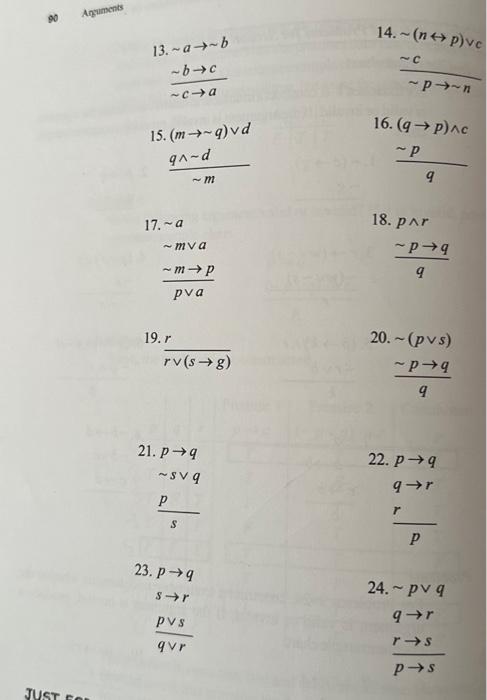 90 Arguments
13. ~a→~b
~b→c
~c→a
14. ~(n↔p)∨c
~c
~p→~n
15. (m→~q)∨d
q∧~d
~m
16. (q→p)∧c
~p
q
17. ~a
~m∨a
~m→p
p∨a
18. p∧r
~p→q
q
19. r
r∨(s→g)
20. ~(p∨s)
~p→q
q
21. p→q
~s∨q
p
s
22. p→q
q→r
r
p
23. p→q
s→r
p∨s
q∨r
24. ~p∨q
q→r
r→s
p→s
JUST